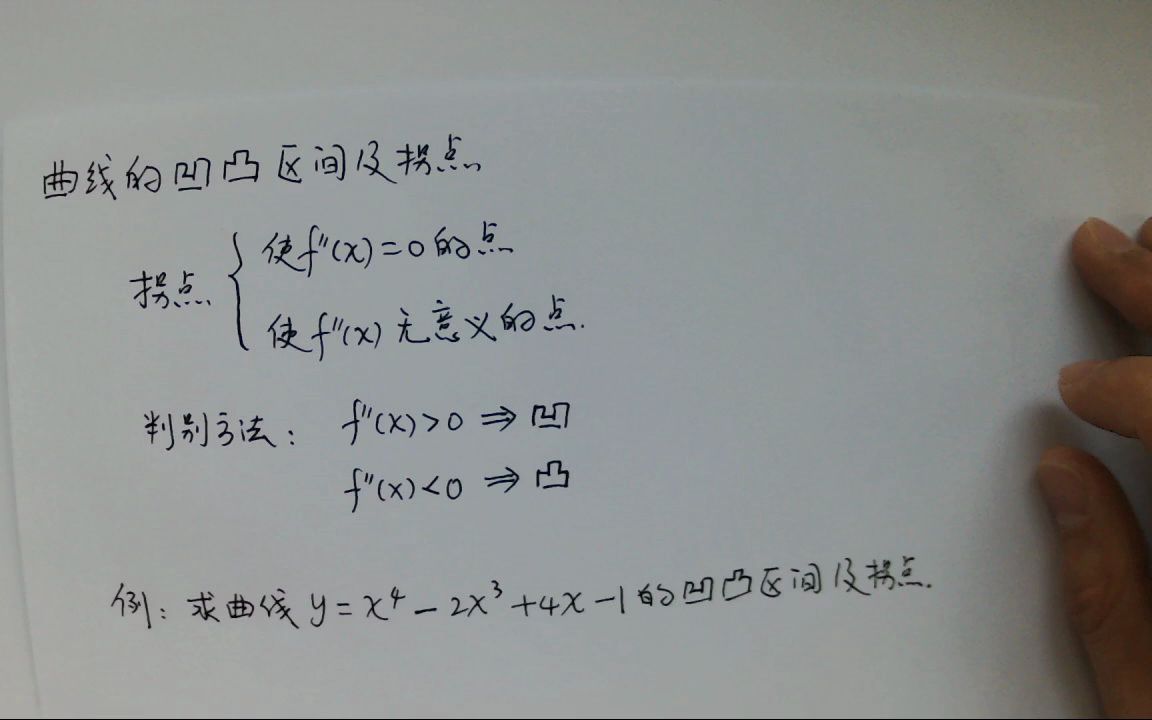 曲线的凹凸区间及拐点
拐点 { 使f''(x)=0的点
使f''(x)无意义的点.
判别方法: f''(x)>0 ⇒ 凹
f''(x)<0 ⇒ 凸
例: 求曲线 y = x⁴ - 2x³ + 4x - 1 的凹凸区间及拐点.